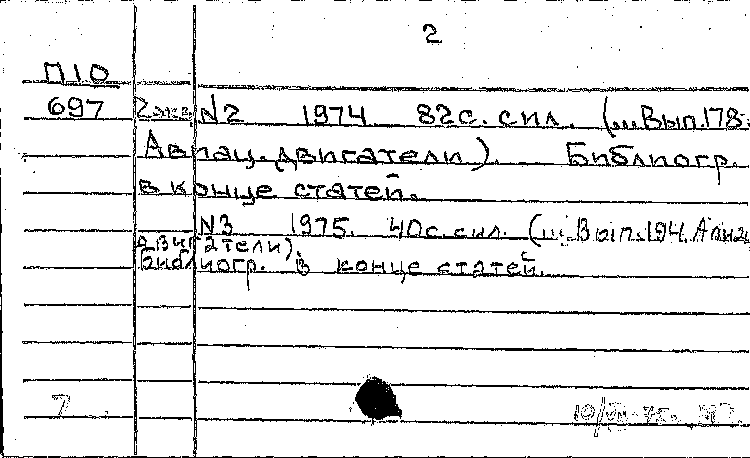 2
П10
697 2экз N2 1974 82с. с ил. (...Вып.178.
Авиац. двигатели). Библиогр.
в конце статей.
N3 1975. 40с. с ил. (...Вып.194. Авиац
двигатели).
библиогр. в конце статей.
7